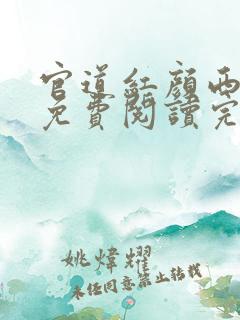 官道红颜西
免费阅读完
姚煒耀
未经同意禁止转载